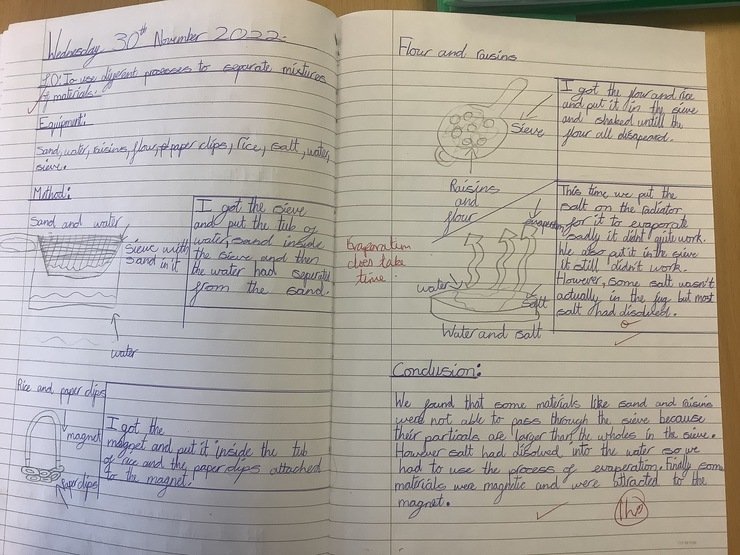 Wednesday 30th November 2022.
LO: To use diyerent processes to separate mixtures
of materials.
Equipment:
Sand, water, raisins, flour, paper clips, rice, salt, water,
sieve.
Method:
Sand and water
sieve with
sand in it
water
I got the sieve
and put the tub of
water, sand inside
the sieve and then
the water had seperated
from the sand.
Rice and paper clips
magnet
paper clips
I got the
magnet and put it inside the tub
of rice and the paper clips attached
to the magnet.
Flour and raisins
Sieve
Raisins
and
flour
I got the flour and rice
and put it in the sieve
and shaked untill the
flour all disapeard.
Evaporatum
does take
time.
evaporation
water
Salt
Water and salt
This time we put the
salt on the radiator
for it to evaporate
sadly it didn't quite work.
We also put it in the sieve
it still didn't work.
However, some salt wasn't
actually in the jug but most
salt had disolved.
Conclusion:
We found that some materials like sand and raisins
were not able to pass through the sieve because
their particals are larger than the wholes in the sieve.
However salt had disolved into the water so we
had to use the process of evaporation. Finally some
materials were magnetic and were attracted to the
magnet.